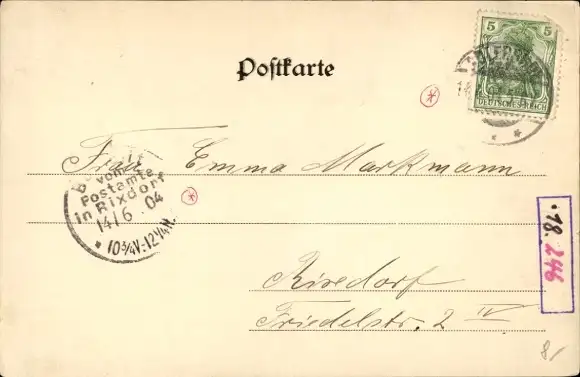 5
DEUTSCHES REICH
Postkarte
Frau Emma Markmann
b vom
Postamte
in Rixdorf
14/6 04
10¾V.-12¼N.
Rixdorf
Friedelstr. 2 IV
18.246
8/